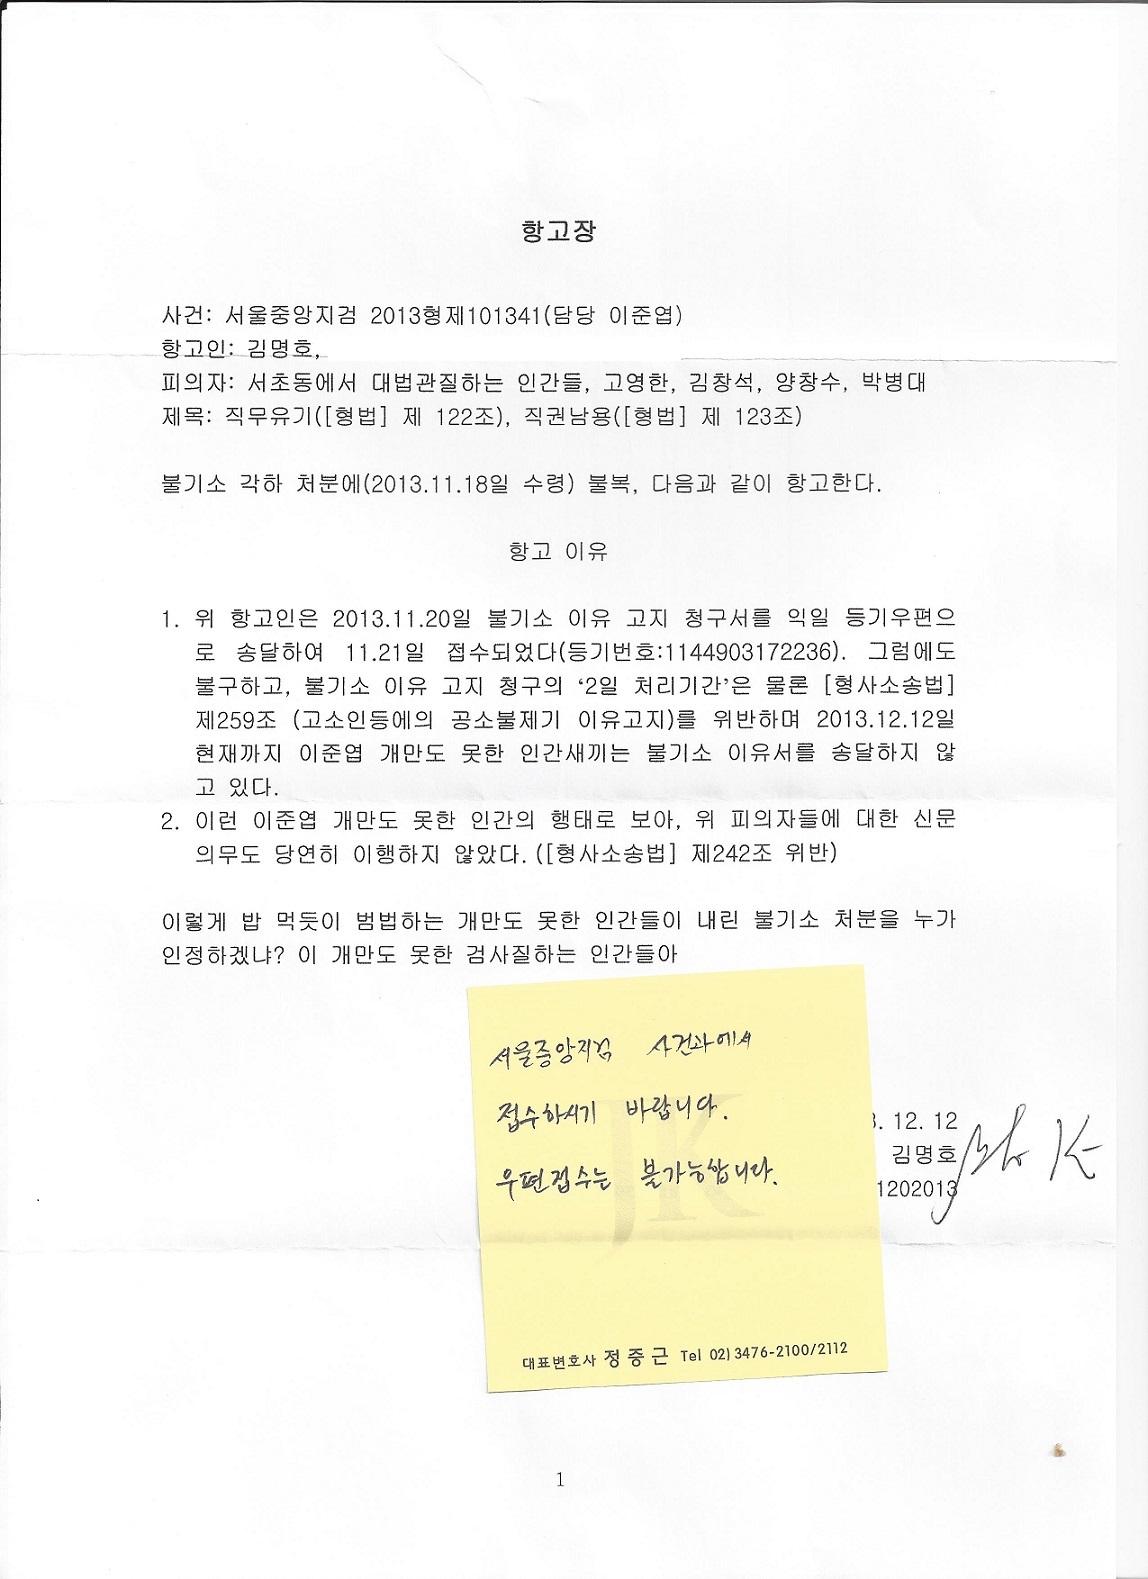 항고장
사건: 서울중앙지검 2013형제101341(담당 이준엽)
항고인: 김명호,
피의자: 서초동에서 대법관질하는 인간들, 고영한, 김창석, 양창수, 박병대
제목: 직무유기([형법] 제 122조), 직권남용([형법] 제 123조)
불기소 각하 처분에(2013.11.18일 수령) 불복, 다음과 같이 항고한다.
항고 이유
1. 위 항고인은 2013.11.20일 불기소 이유 고지 청구서를 익일 등기우편으
로 송달하여 11.21일 접수되었다(등기번호:1144903172236). 그럼에도
불구하고, 불기소 이유 고지 청구의 ‘2일 처리기간’은 물론 [형사소송법]
제259조 (고소인등에의 공소불제기 이유고지)를 위반하며 2013.12.12일
현재까지 이준엽 개만도 못한 인간새끼는 불기소 이유서를 송달하지 않
고 있다.
2. 이런 이준엽 개만도 못한 인간의 행태로 보아, 위 피의자들에 대한 신문
의무도 당연히 이행하지 않았다. ([형사소송법] 제242조 위반)
이렇게 밥 먹듯이 범법하는 개만도 못한 인간들이 내린 불기소 처분을 누가
인정하겠냐? 이 개만도 못한 검사질하는 인간들아
서울중앙지검 사건과에서
접수하시기 바랍니다.
우편접수는 불가능합니다.
JK
대표변호사 정중근 Tel 02)3476-2100/2112
3. 12. 12
김명호
1202013
1